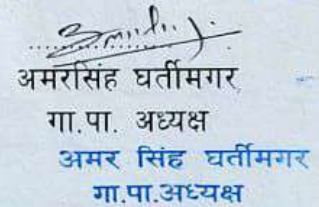 अमरसिंह घर्तीमगर
गा.पा. अध्यक्ष
अमर सिंह घर्तीमगर
गा.पा.अध्यक्ष